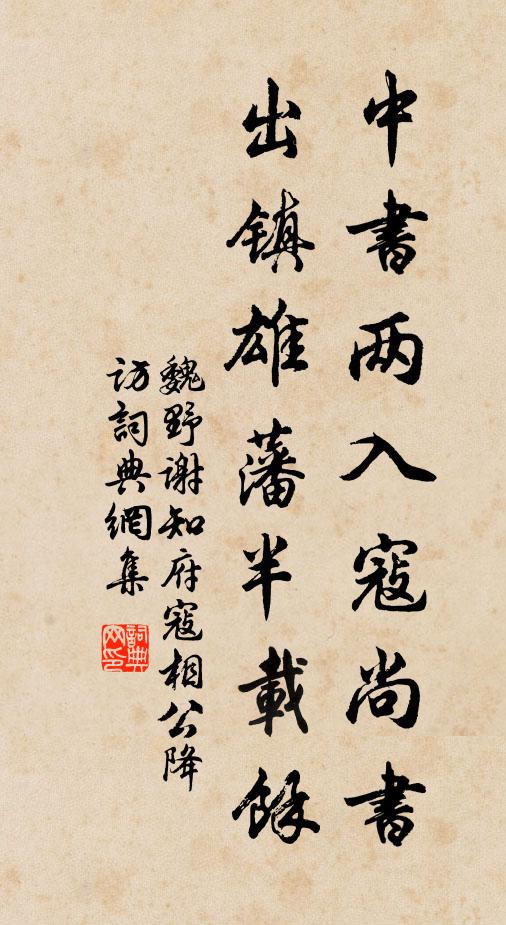 中書两入寇尚書
出镇雄藩半載餘
魏野谢知府寇相公降
访詞典網集
詞典
网印